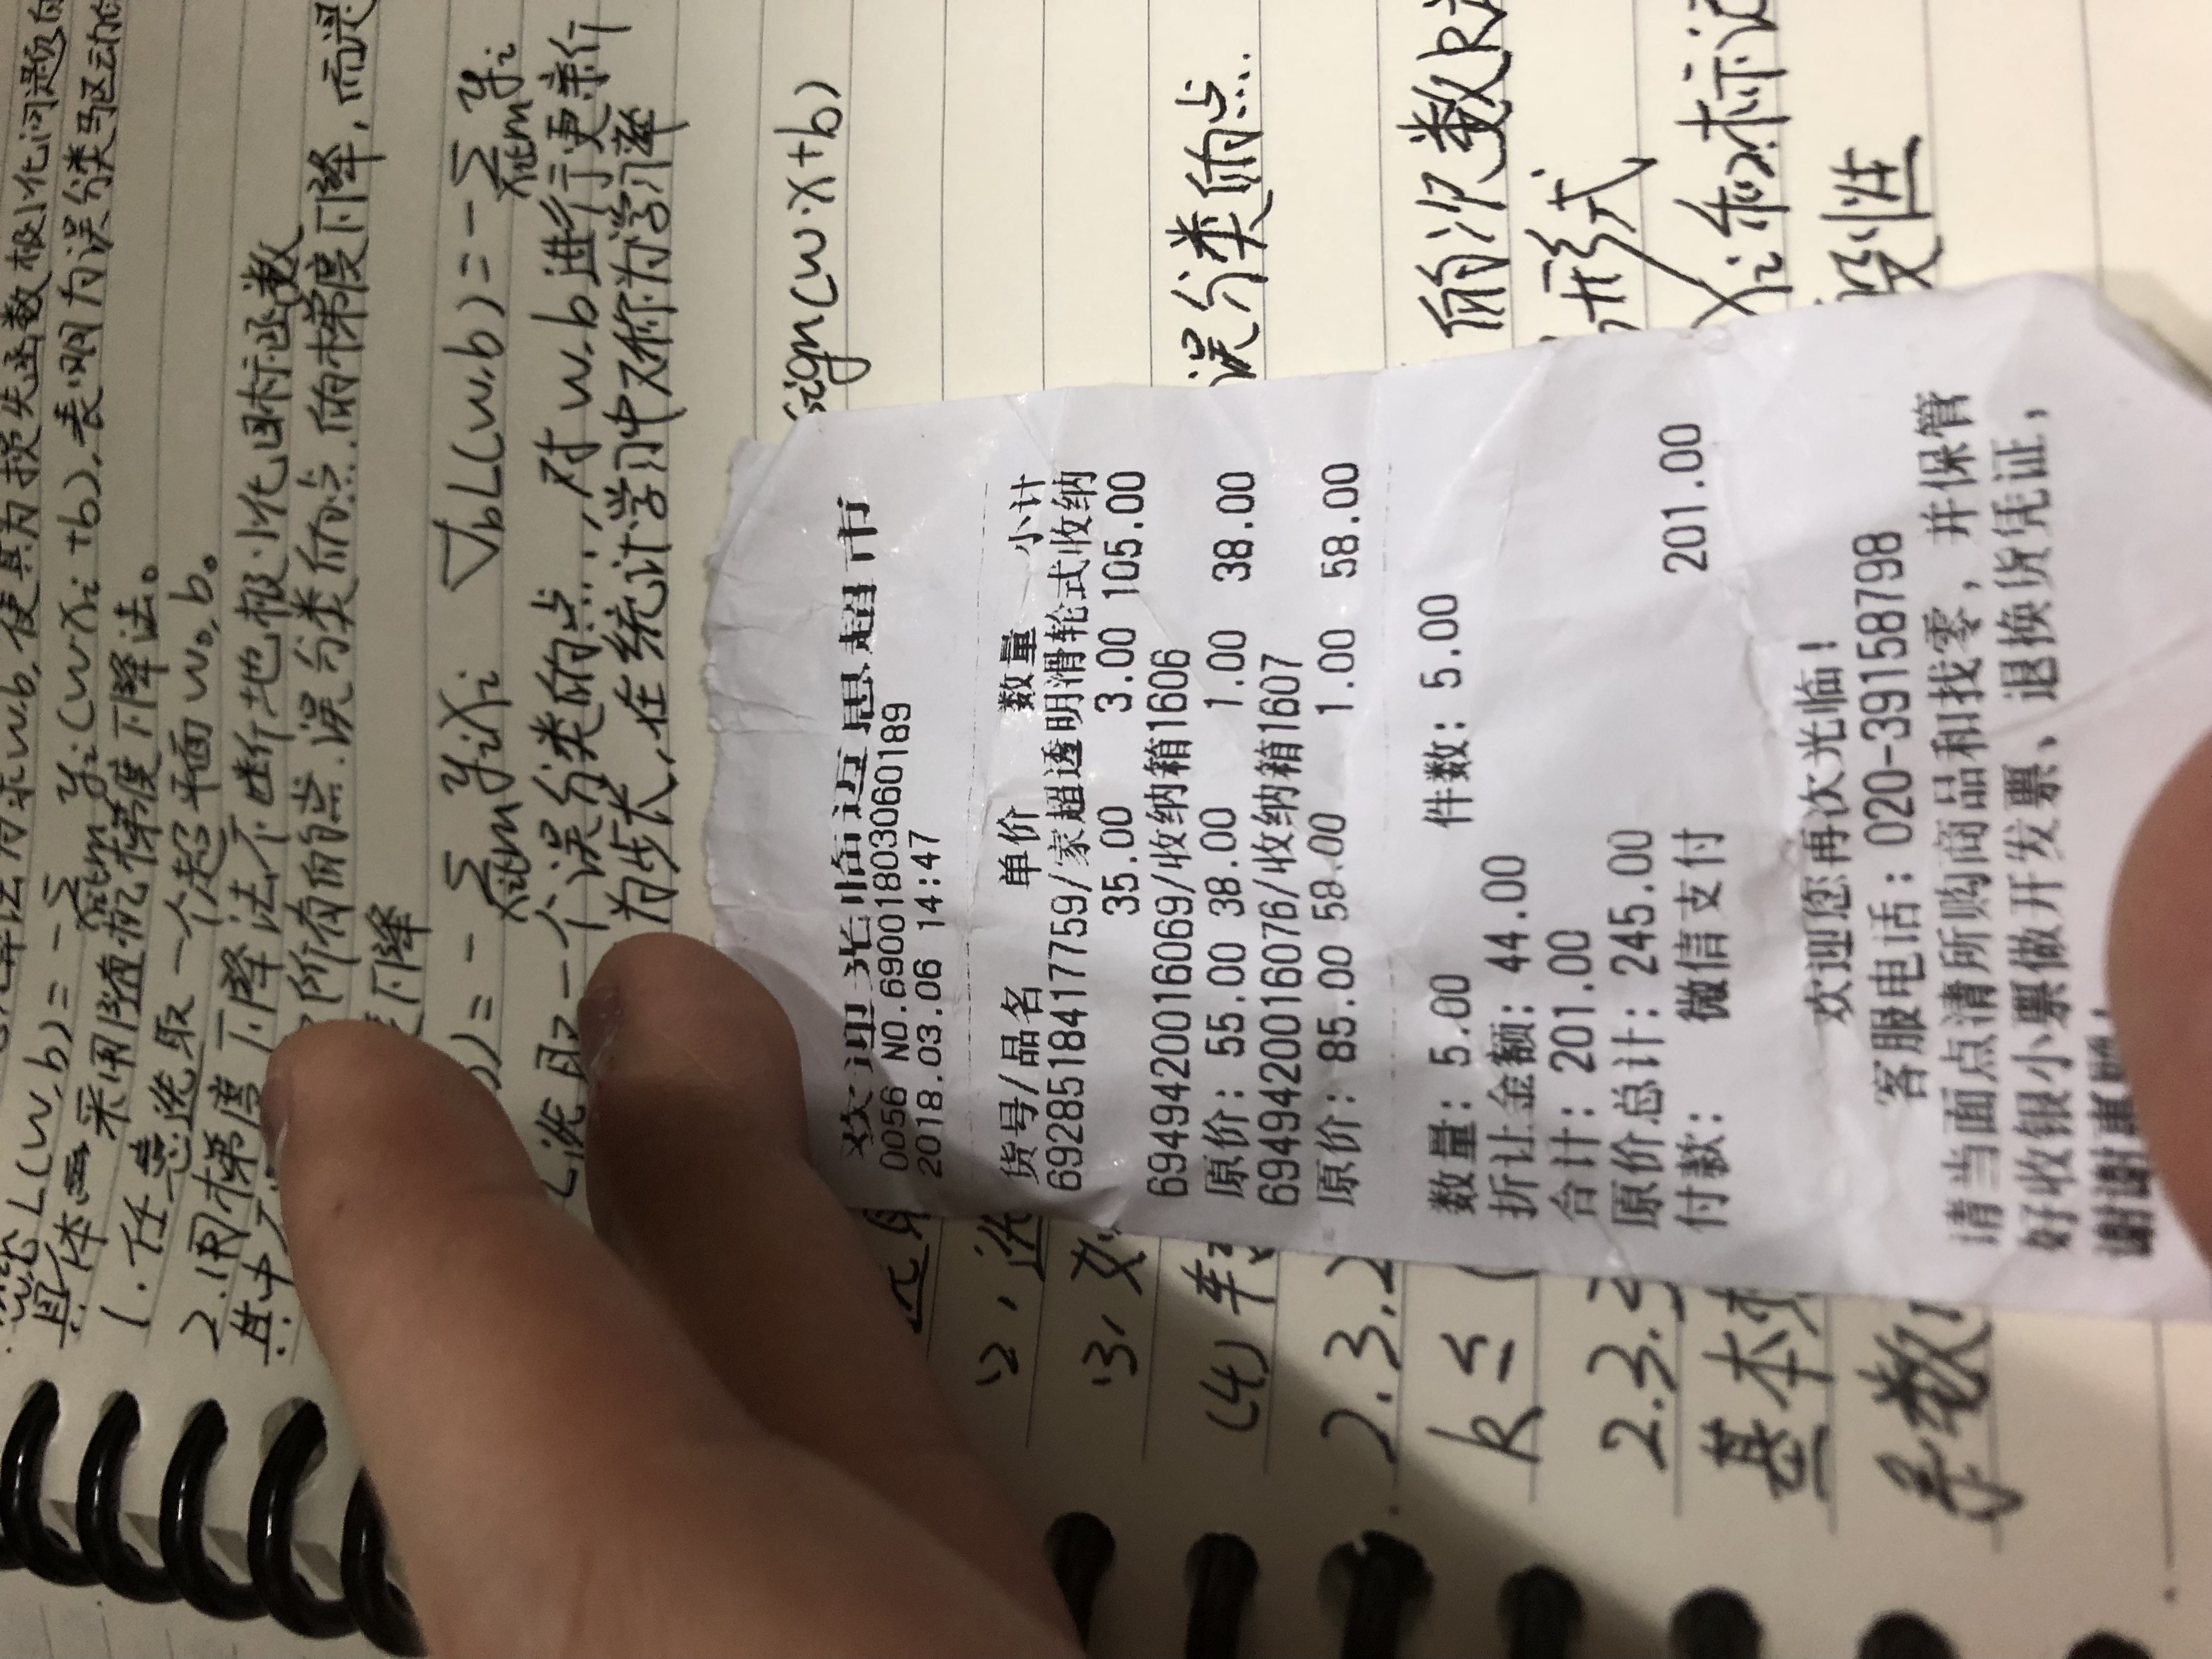 算法为求w.b,使其为损失函数极小化问题的
L(w,b)=-Σ yi(w·xi+b),表明为误分类驱动的
xi∈m
具体 采用随机梯度下降法。
1.任意选取一个超平面w₀,b₀
2.用梯度下降法不断地极小化目标函数
其中不 所有的点.误分类的点.的梯度下降,而是
下降
)=-Σ yixi ∇bL(w,b)=-Σ yi
xi∈m xi∈m
选取一个误分类的点..,对w.b进行更新
为步长,在统计学习中又称为学习率
sign(w·x+b)
选取
(2)选
(3)
(4) 误分类的点.
2.3.2
k≤( 的次数k
2.3.3 形式
基本 xi和标记
数
欢迎光临迈思超市
0056 NO.69001803060189
2018.03.06 14:47
货号/品名 单价 数量 小计
6928518417759/家超透明滑轮式收纳
35.00 3.00 105.00
6949420016069/收纳箱1606
原价: 55.00 38.00 1.00 38.00
6949420016076/收纳箱1607
原价: 85.00 58.00 1.00 58.00
数量: 5.00 件数: 5.00
折让金额: 44.00
合计: 201.00
原价总计: 245.00
付款: 微信支付 201.00
欢迎您再次光临!
客服电话: 020-39158798
请当面点清所购商品和找零, 并保管
好收银小票做开发票、退换货凭证,
谢谢惠顾!